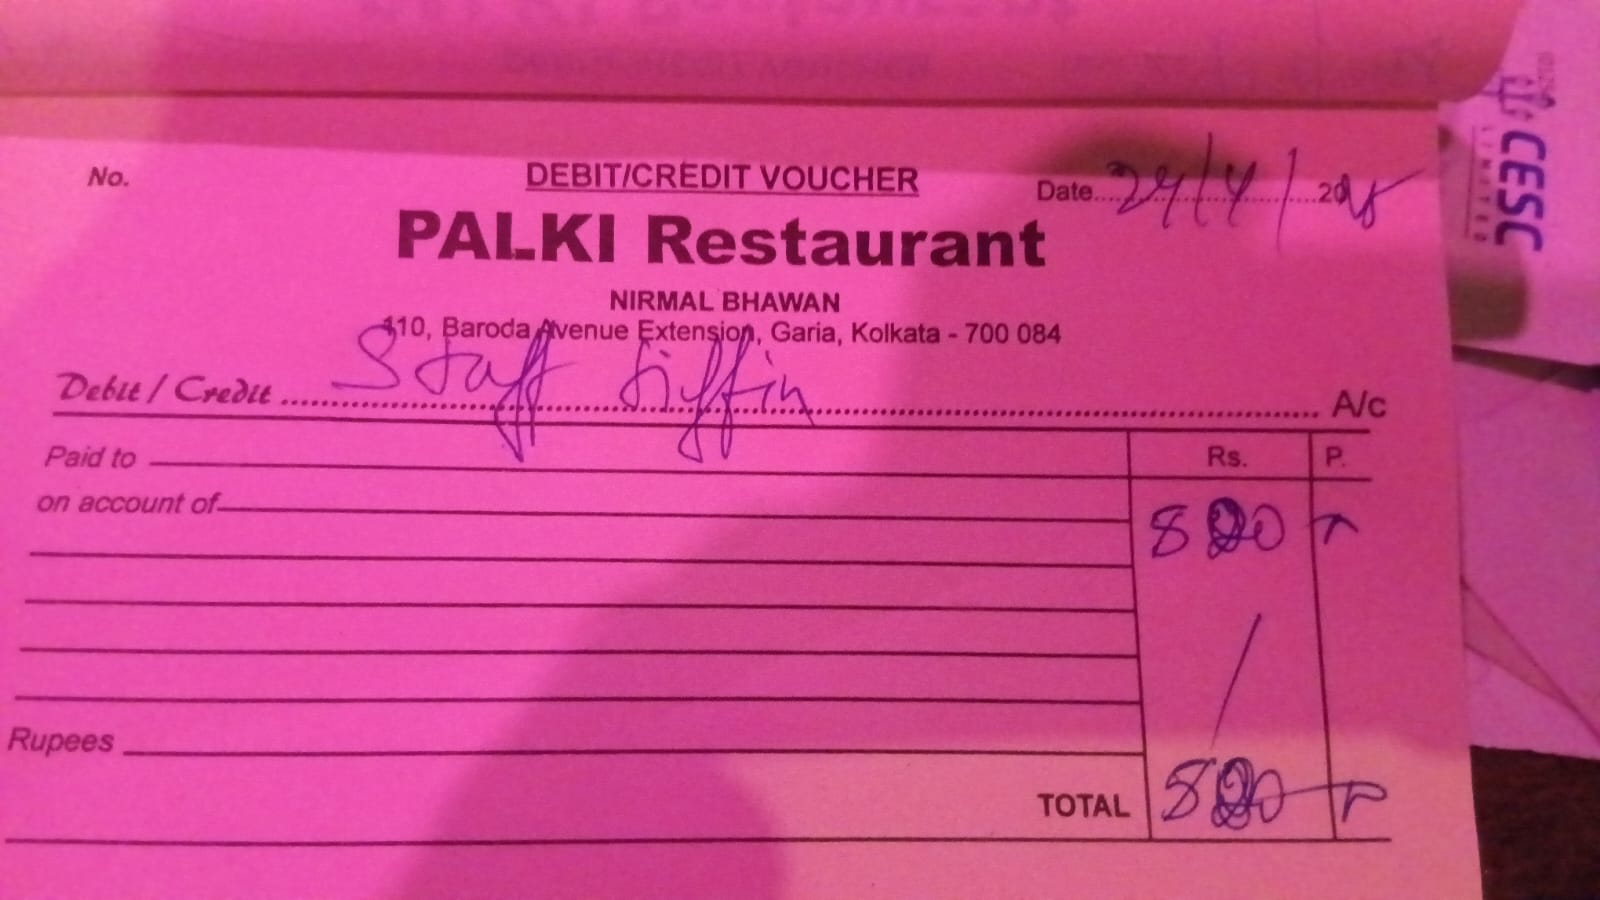 No.
DEBIT/CREDIT VOUCHER
Date 24/4/2025
PALKI Restaurant
NIRMAL BHAWAN
110, Baroda Avenue Extension, Garia, Kolkata - 700 084
Debit / Credit Staff tiffin A/c
Paid to
Rs. P.
on account of
820
Rupees
TOTAL 820
CESC
LIMITED